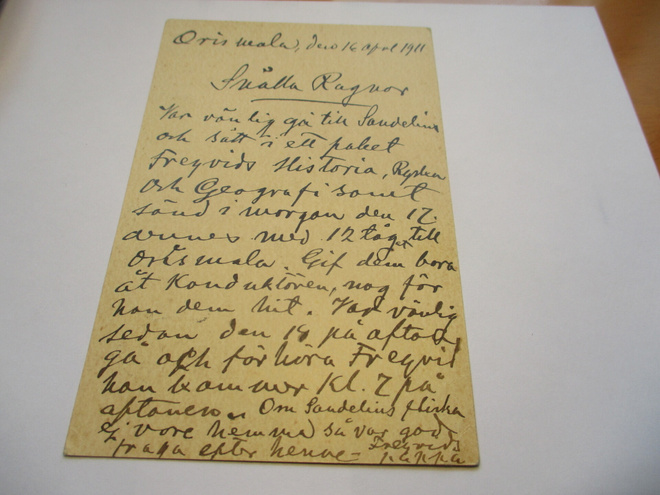 Orismala, den 16 april 1911
Snälla Ragnar
Var vänlig gå till Sandelius
och sätt i ett paket
Freyvids Historia, Ryska
och Geografi samt
sänd i morgon den 17.
dennes med 12 tåg till
Orismala. Gif dem bara
åt Konduktören, nog för
han dem hit. Var vänlig
sedan den 18 på afton
gå och förhöra Freyvid
han kommer Kl. 7 på
aftonen. Om Sandelius flicka
ej vore hemma så var god
fråga efter henne - Freyvids
pappa